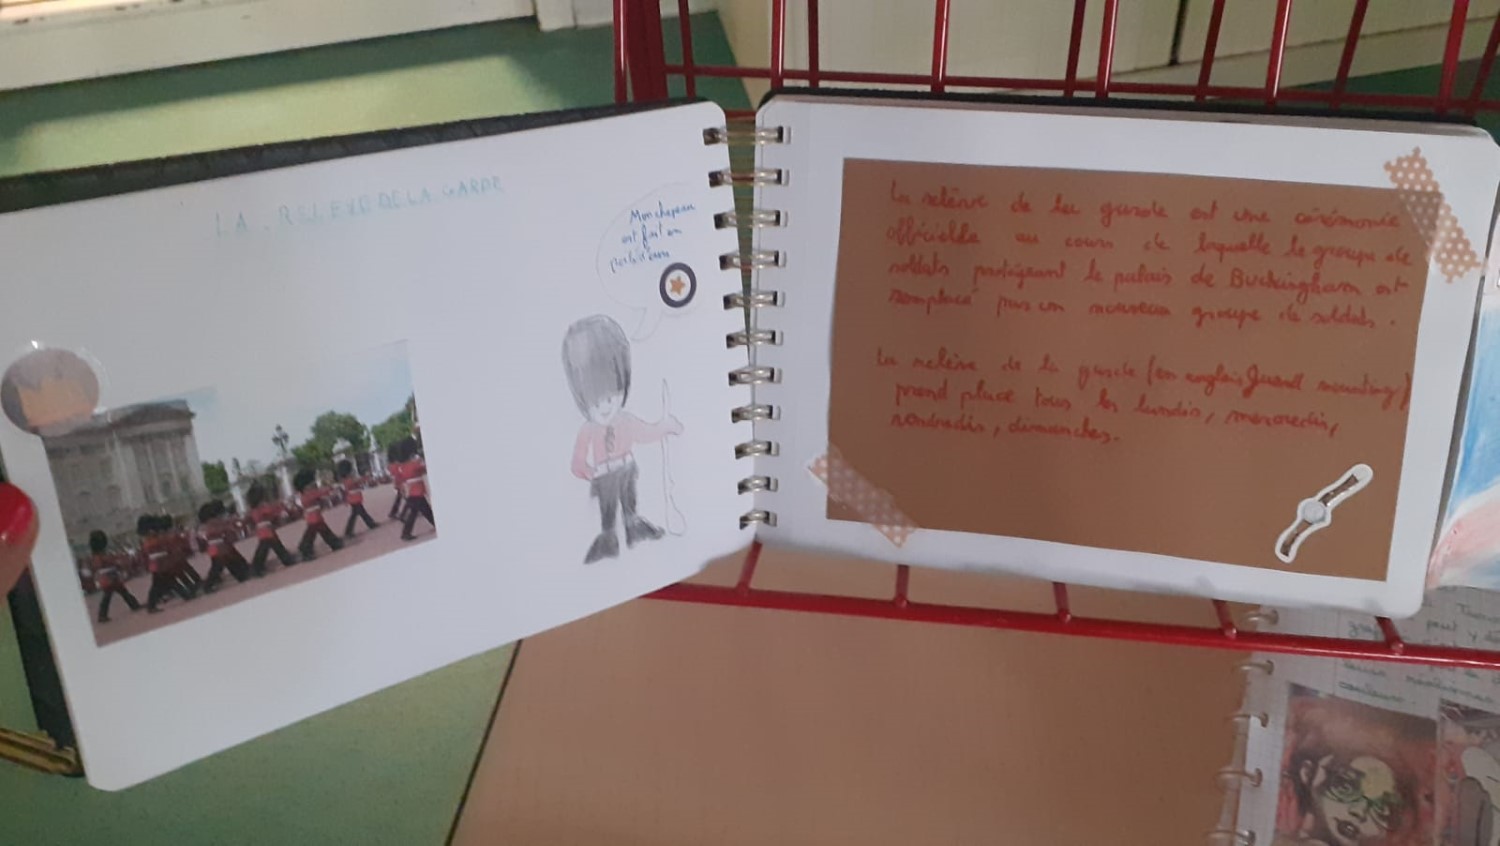 LA RELEVE DE LA GARDE
Mon chapeau
est fait en
poils d'ours
La relève de la garde est une cérémonie
officielle au cours de laquelle le groupe de
soldats protégeant le palais de Buckingham est
remplacé par un nouveau groupe de soldats.
La relève de la garde (en anglais Guard mounting)
prend place tous les lundis, mercredis,
vendredis, dimanches.
peut y
couleurs.